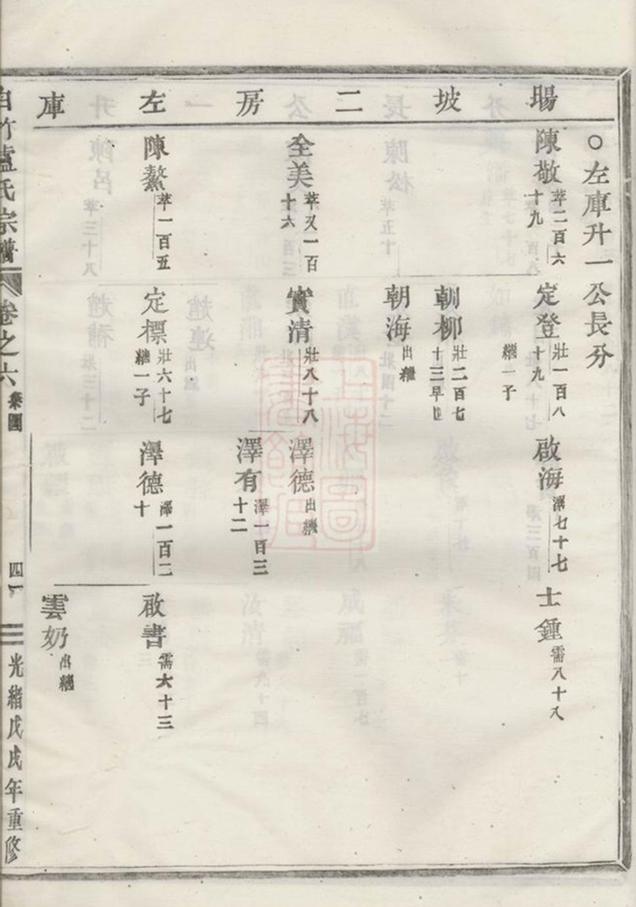 場坡二房左庫
○左庫升一公長分
陳敬 苹二百六十九
定登 壯一百八十九 繼一子
啟海 澤七十七
士鍾 需八十八
朝柳 壯二百七十三早世
朝海 出繼
全美 苹又一百十六
實清 壯八十八
澤德 出繼
澤有 澤一百三十二
陳鰲 苹一百五
定標 壯六十七 繼一子
澤德 澤一百二十
啟書 需六十三
雲奶 出繼
白竹盧氏宗譜 卷之六 四一 光緒戊戌年重修